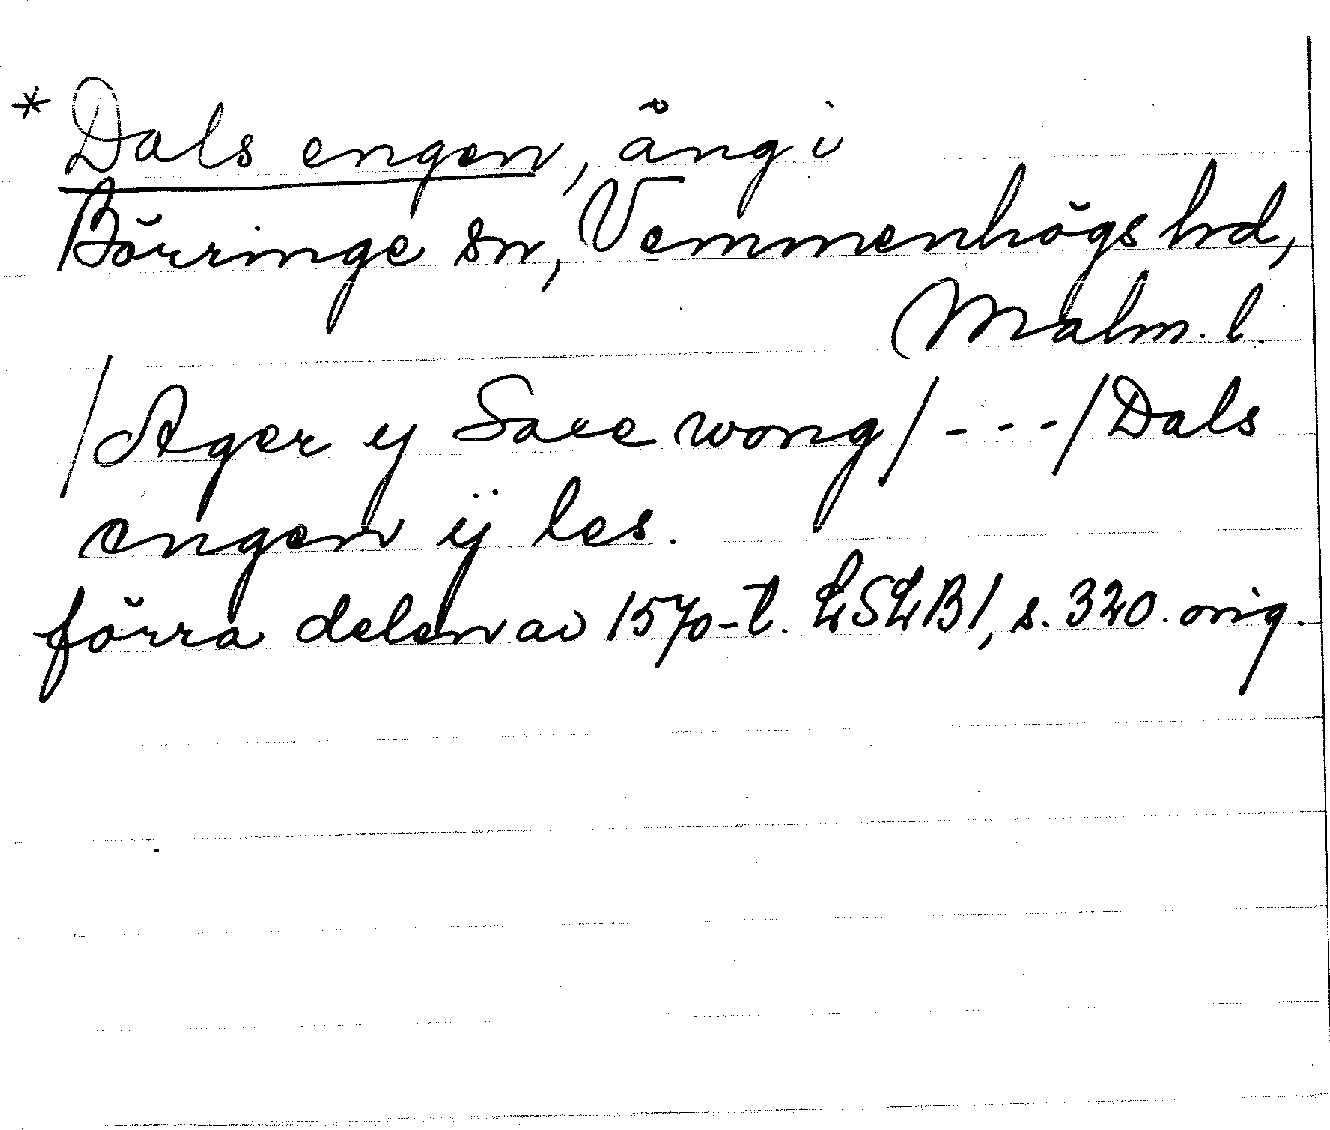 * Dals engen, äng i
Börringe sn, Vemmenhögs hd,
Malm. l.
/Ager y Saxe wong/---/Dals
engen ÿ les.
förra delen av 1570-t. LSLB1, s. 320. orig.